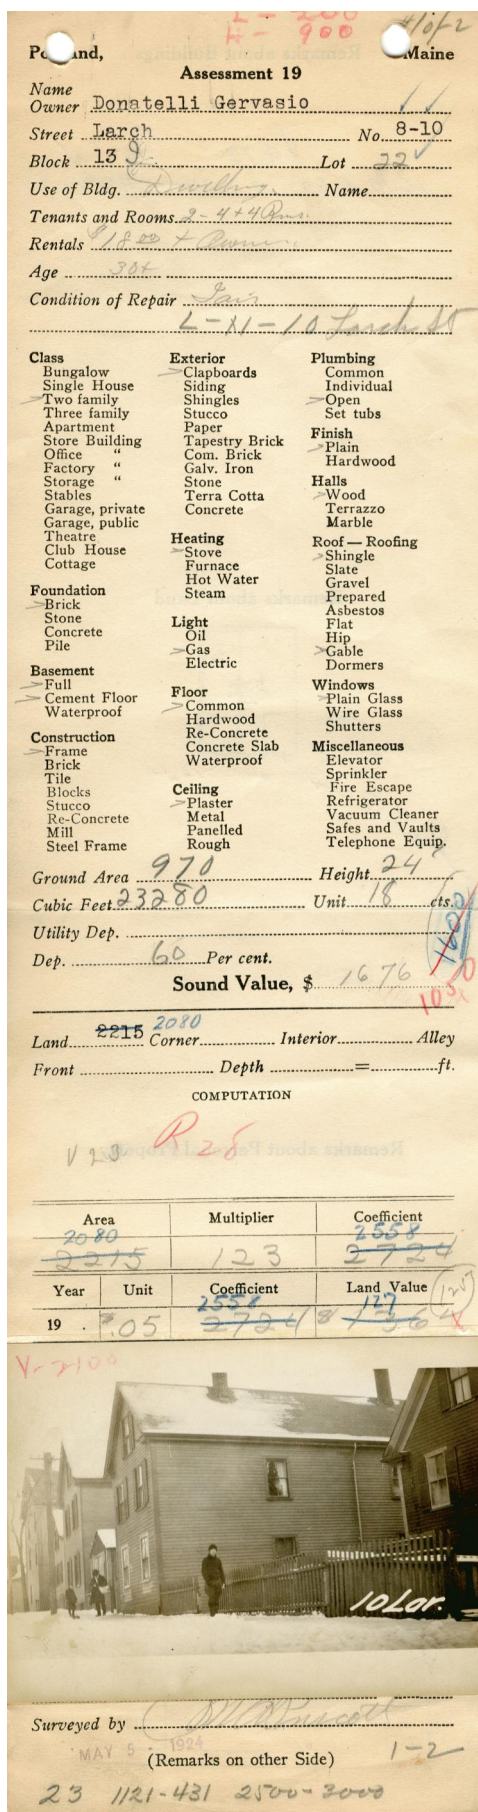 L - 200
H - 900
#1 of 2
Portland, Maine
Assessment 19
Name
Owner Donatelli Gervasio
Street Larch No. 8-10
Block 13 J Lot 22
Use of Bldg. Dwelling Name
Tenants and Rooms 2-4+4 Rms.
Rentals $18.00 + Owner.
Age 30+
Condition of Repair Fair
L-XI-10 Larch St
Class
Bungalow
Single House
Two family
Three family
Apartment
Store Building
Office "
Factory "
Storage "
Stables
Garage, private
Garage, public
Theatre
Club House
Cottage
Foundation
Brick
Stone
Concrete
Pile
Basement
Full
Cement Floor
Waterproof
Construction
Frame
Brick
Tile
Blocks
Stucco
Re-Concrete
Mill
Steel Frame
Exterior
Clapboards
Siding
Shingles
Stucco
Paper
Tapestry Brick
Com. Brick
Galv. Iron
Stone
Terra Cotta
Concrete
Heating
Stove
Furnace
Hot Water
Steam
Light
Oil
Gas
Electric
Floor
Common
Hardwood
Re-Concrete
Concrete Slab
Waterproof
Ceiling
Plaster
Metal
Panelled
Rough
Plumbing
Common
Individual
Open
Set tubs
Finish
Plain
Hardwood
Halls
Wood
Terrazzo
Marble
Roof — Roofing
Shingle
Slate
Gravel
Prepared
Asbestos
Flat
Hip
Gable
Dormers
Windows
Plain Glass
Wire Glass
Shutters
Miscellaneous
Elevator
Sprinkler
Fire Escape
Refrigerator
Vacuum Cleaner
Safes and Vaults
Telephone Equip.
Ground Area 970 Height 24'
Cubic Feet 23280 Unit 18 cts.
Utility Dep.
Dep. 60 Per cent.
1600
Sound Value, $ 1676
1050
Land 2215 2080 Corner Interior Alley
Front Depth = ft.
COMPUTATION
V 23 R 28
Area Multiplier Coefficient
2080 2558
2215 123 2724
Year Unit Coefficient Land Value
2558 127 125
19 . $.05 2724 $ 136
V-2100
10 Lar.
Surveyed by
MAY 5 - 1924
(Remarks on other Side) 1-2
23 1121-431 2500-3000